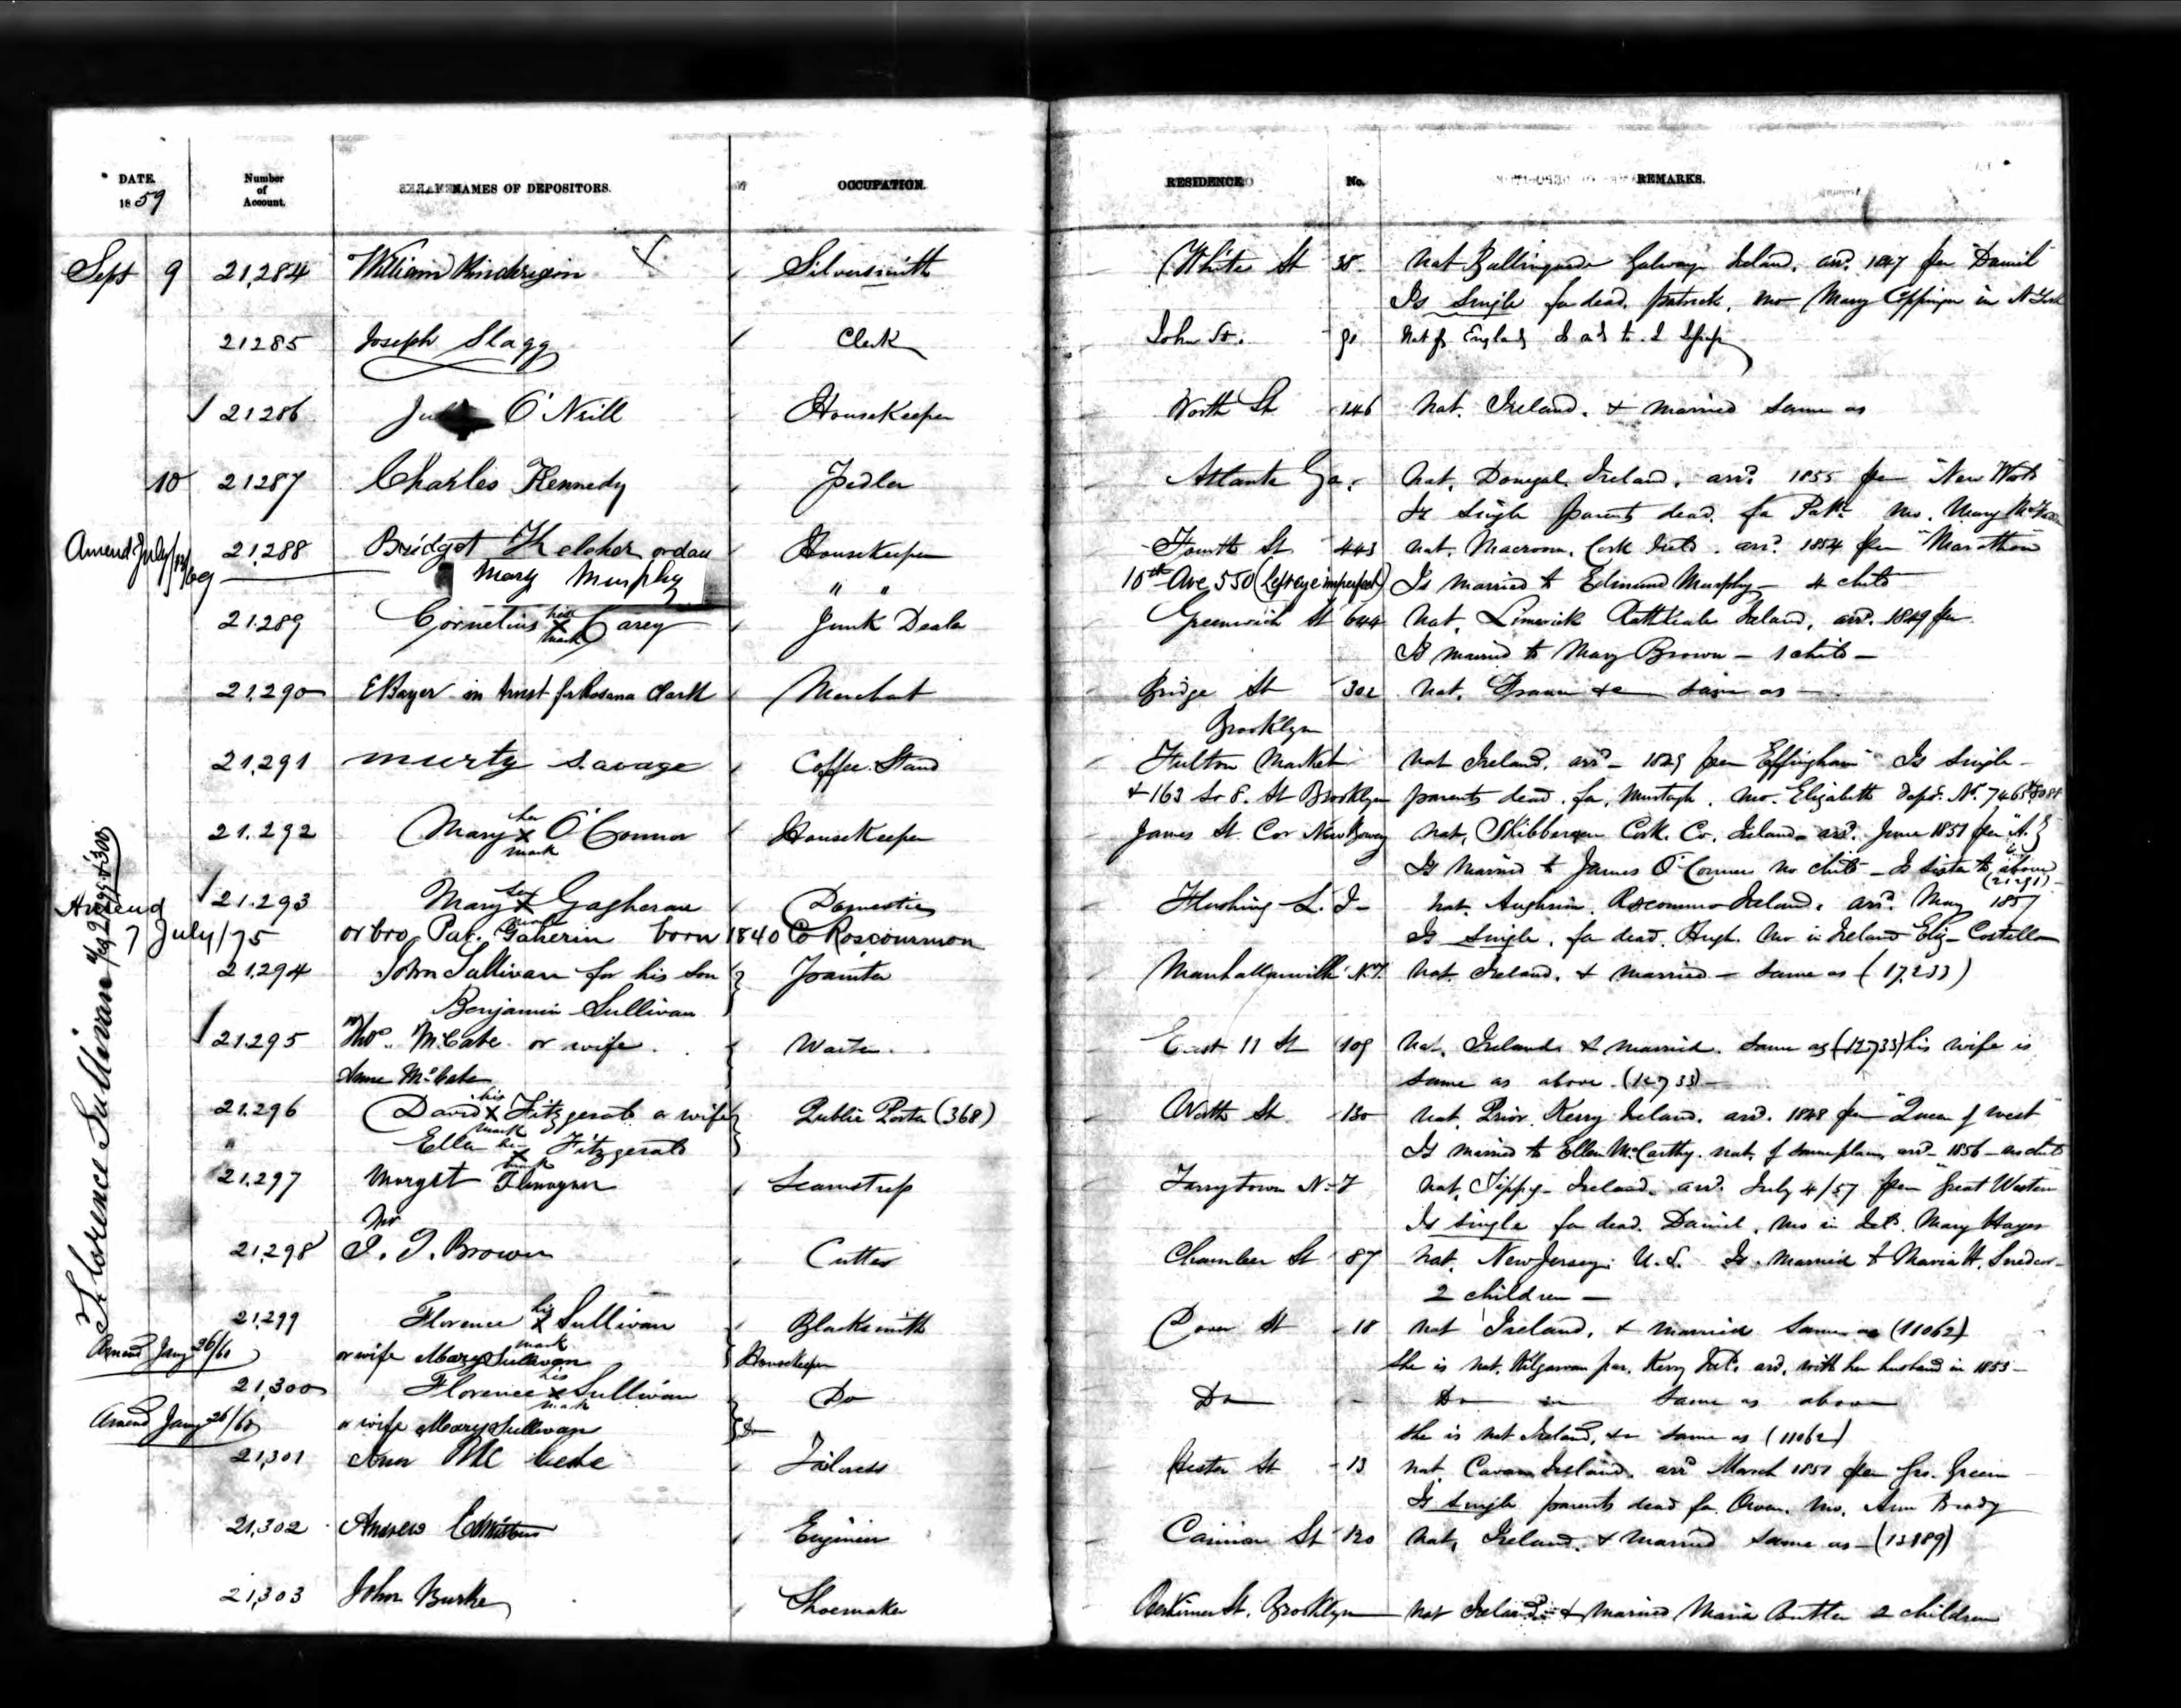 DATE. Number of Account. NAMES OF DEPOSITORS. OCCUPATION. RESIDENCE No. REMARKS.
1859
Sept 9 21,284 William Silversmith White St 38 Nat Galway Ireland. arrd. 1847 per Daniel
Is single fa dead. Patrick. mo Mary Coppinger in N York
21285 Joseph Slagg Clerk John St. 91 Nat of England
21286 O'Neill HouseKeeper Worth St 146 Nat. Ireland. & married same as
10 21287 Charles Kennedy Pedler Atlanta Ga. Nat. Donegal Ireland. arrd. 1855 per "New World"
Is single parents dead. fa Patk. mo. Mary
Amend July 21,288 Bridget Keleher or dau HouseKeeper Fourth St 443 Nat. Macroom. Cork Ireld. arrd. 1854 per "Marathon"
Mary Murphy " " 10th Ave 550 (Left eye imperfect) Is married to Edmund Murphy — 4 child
21289 Cornelius his x mark Carey Junk Dealer Greenwich St 644 Nat. Limerick Rathkeale Ireland. arrd. 1849 per
Is married to Mary Brown — 1 child —
21,290 E Bayer in trust for Rosana Clark Merchant Bridge St 302 Nat. same as —
Brooklyn
21,291 murty savage Coffee Stand Fulton Market Nat Ireland. arrd — 1829 per Effingham Is single —
& 163 So 8. St Brooklyn parents dead. fa. Murtagh. mo. Elizabeth
21.292 Mary her x mark O'Connor HouseKeeper James St. Cor New Bowery Nat. Skibbereen Cork. Co. Ireland — arrd. June 1851 per
Is married to James O'Connor no child — Is sister to above
(21291)
Amend 21.293 Mary her x mark Gagheran Domestic Flushing L. I — Nat. Aughrim. Roscommon Ireland. arrd. May 1857
7 July/75 or bro Pat. Gaherin born 1840 Co Roscommon Is single. fa dead. Hugh. mo in Ireland Eliz — Costello
21.294 John Sullivan for his son Painter Manhattanville N.Y. Nat. Ireland. & married — same as (17,233)
Benjamin Sullivan
21.295 Thos. McCabe or wife Waiter East 11 St 109 Nat. Ireland & married. same as (12733) his wife is
Anne McCabe same as above. (12733) —
21.296 David his x mark Fitzgerald or wife Public Porter (368) Worth St 130 Nat. Prior. Kerry Ireland. arrd. 1848 per "Queen of West"
" Ellen her x mark Fitzgerald Is married to Ellen McCarthy. nat. of same place, arrd — 1856 — no child
21.297 Margt Seamstress Tarrytown N. Y Nat. Tippy — Ireland. arrd. July 4/57 per "Great Western"
Is single fa dead. Daniel. mo in Ireld. Mary Hayes
21,298 Brown Cutter Chamber St 87 Nat. New Jersey. U. S. Is married to Maria H.
2 children —
21,299 Florence his x mark Sullivan Blacksmith Dover St 18 Nat Ireland. & married same as (11062)
Amend Jany 26/60 or wife Mary Sullivan Housekeeper She is nat. Kilgarvan par. Kerry Ireld. arrd. with her husband in 1853 —
21,300 Florence his x mark Sullivan Do Do Do same as above
Amend Jany 26/60 or wife Mary Sullivan She is nat Ireland, same as (11062)
21,301 Ann Mc Tailoress Hester St 13 Nat. Cavan Ireland. arrd March 1851 per Green
Is single parents dead fa. Owen. mo. Ann Brady
21,302 Andrew Engineer Cannon St 120 Nat. Ireland. & married same as — (13189)
21,303 John Burke Shoemaker St. Brooklyn Nat Ireland & married Maria Butler 2 children
Florence Sullivan 21299 & 300